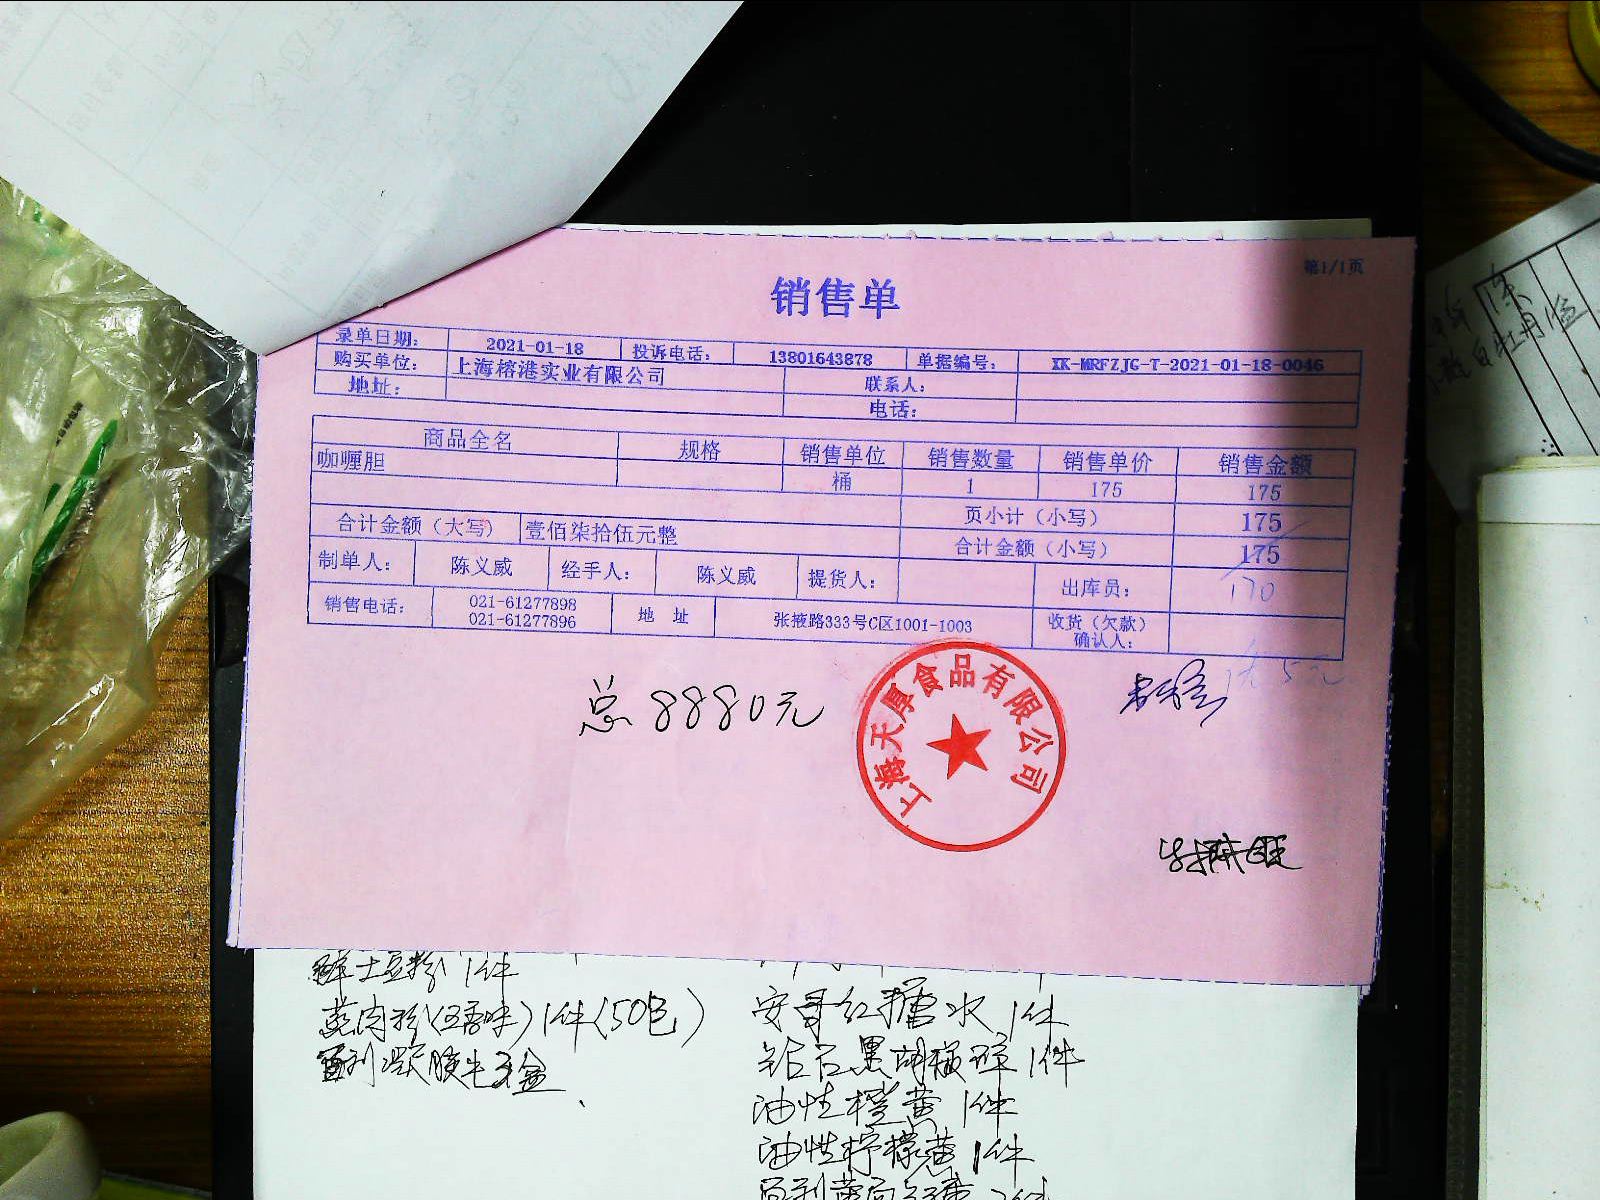 第1/1页
销售单
录单日期: 2021-01-18 投诉电话: 13801643878 单据编号: XK-MRFZJG-T-2021-01-18-0046
购买单位: 上海榕港实业有限公司 联系人:
地址: 电话:
商品全名 规格 销售单位 销售数量 销售单价 销售金额
咖喱胆 桶 1 175 175
页小计（小写） 175
合计金额（大写） 壹佰柒拾伍元整 合计金额（小写） 175
170
制单人: 陈义威 经手人: 陈义威 提货人: 出库员:
销售电话: 021-61277898 021-61277896 地 址 张掖路333号C区1001-1003 收货（欠款）确认人:
总 8880元
上海天厚食品有限公司
鲜土豆粉 1件
蒸肉粉(五香味) 1件(50包)
安哥红糖水 1件
钻石黑胡椒碎 1件
油性橙黄 1件
油性柠檬黄 1件